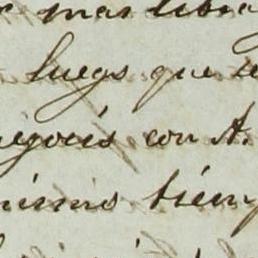 mas libra
luego que se
negocio con A.
mismo tiemp